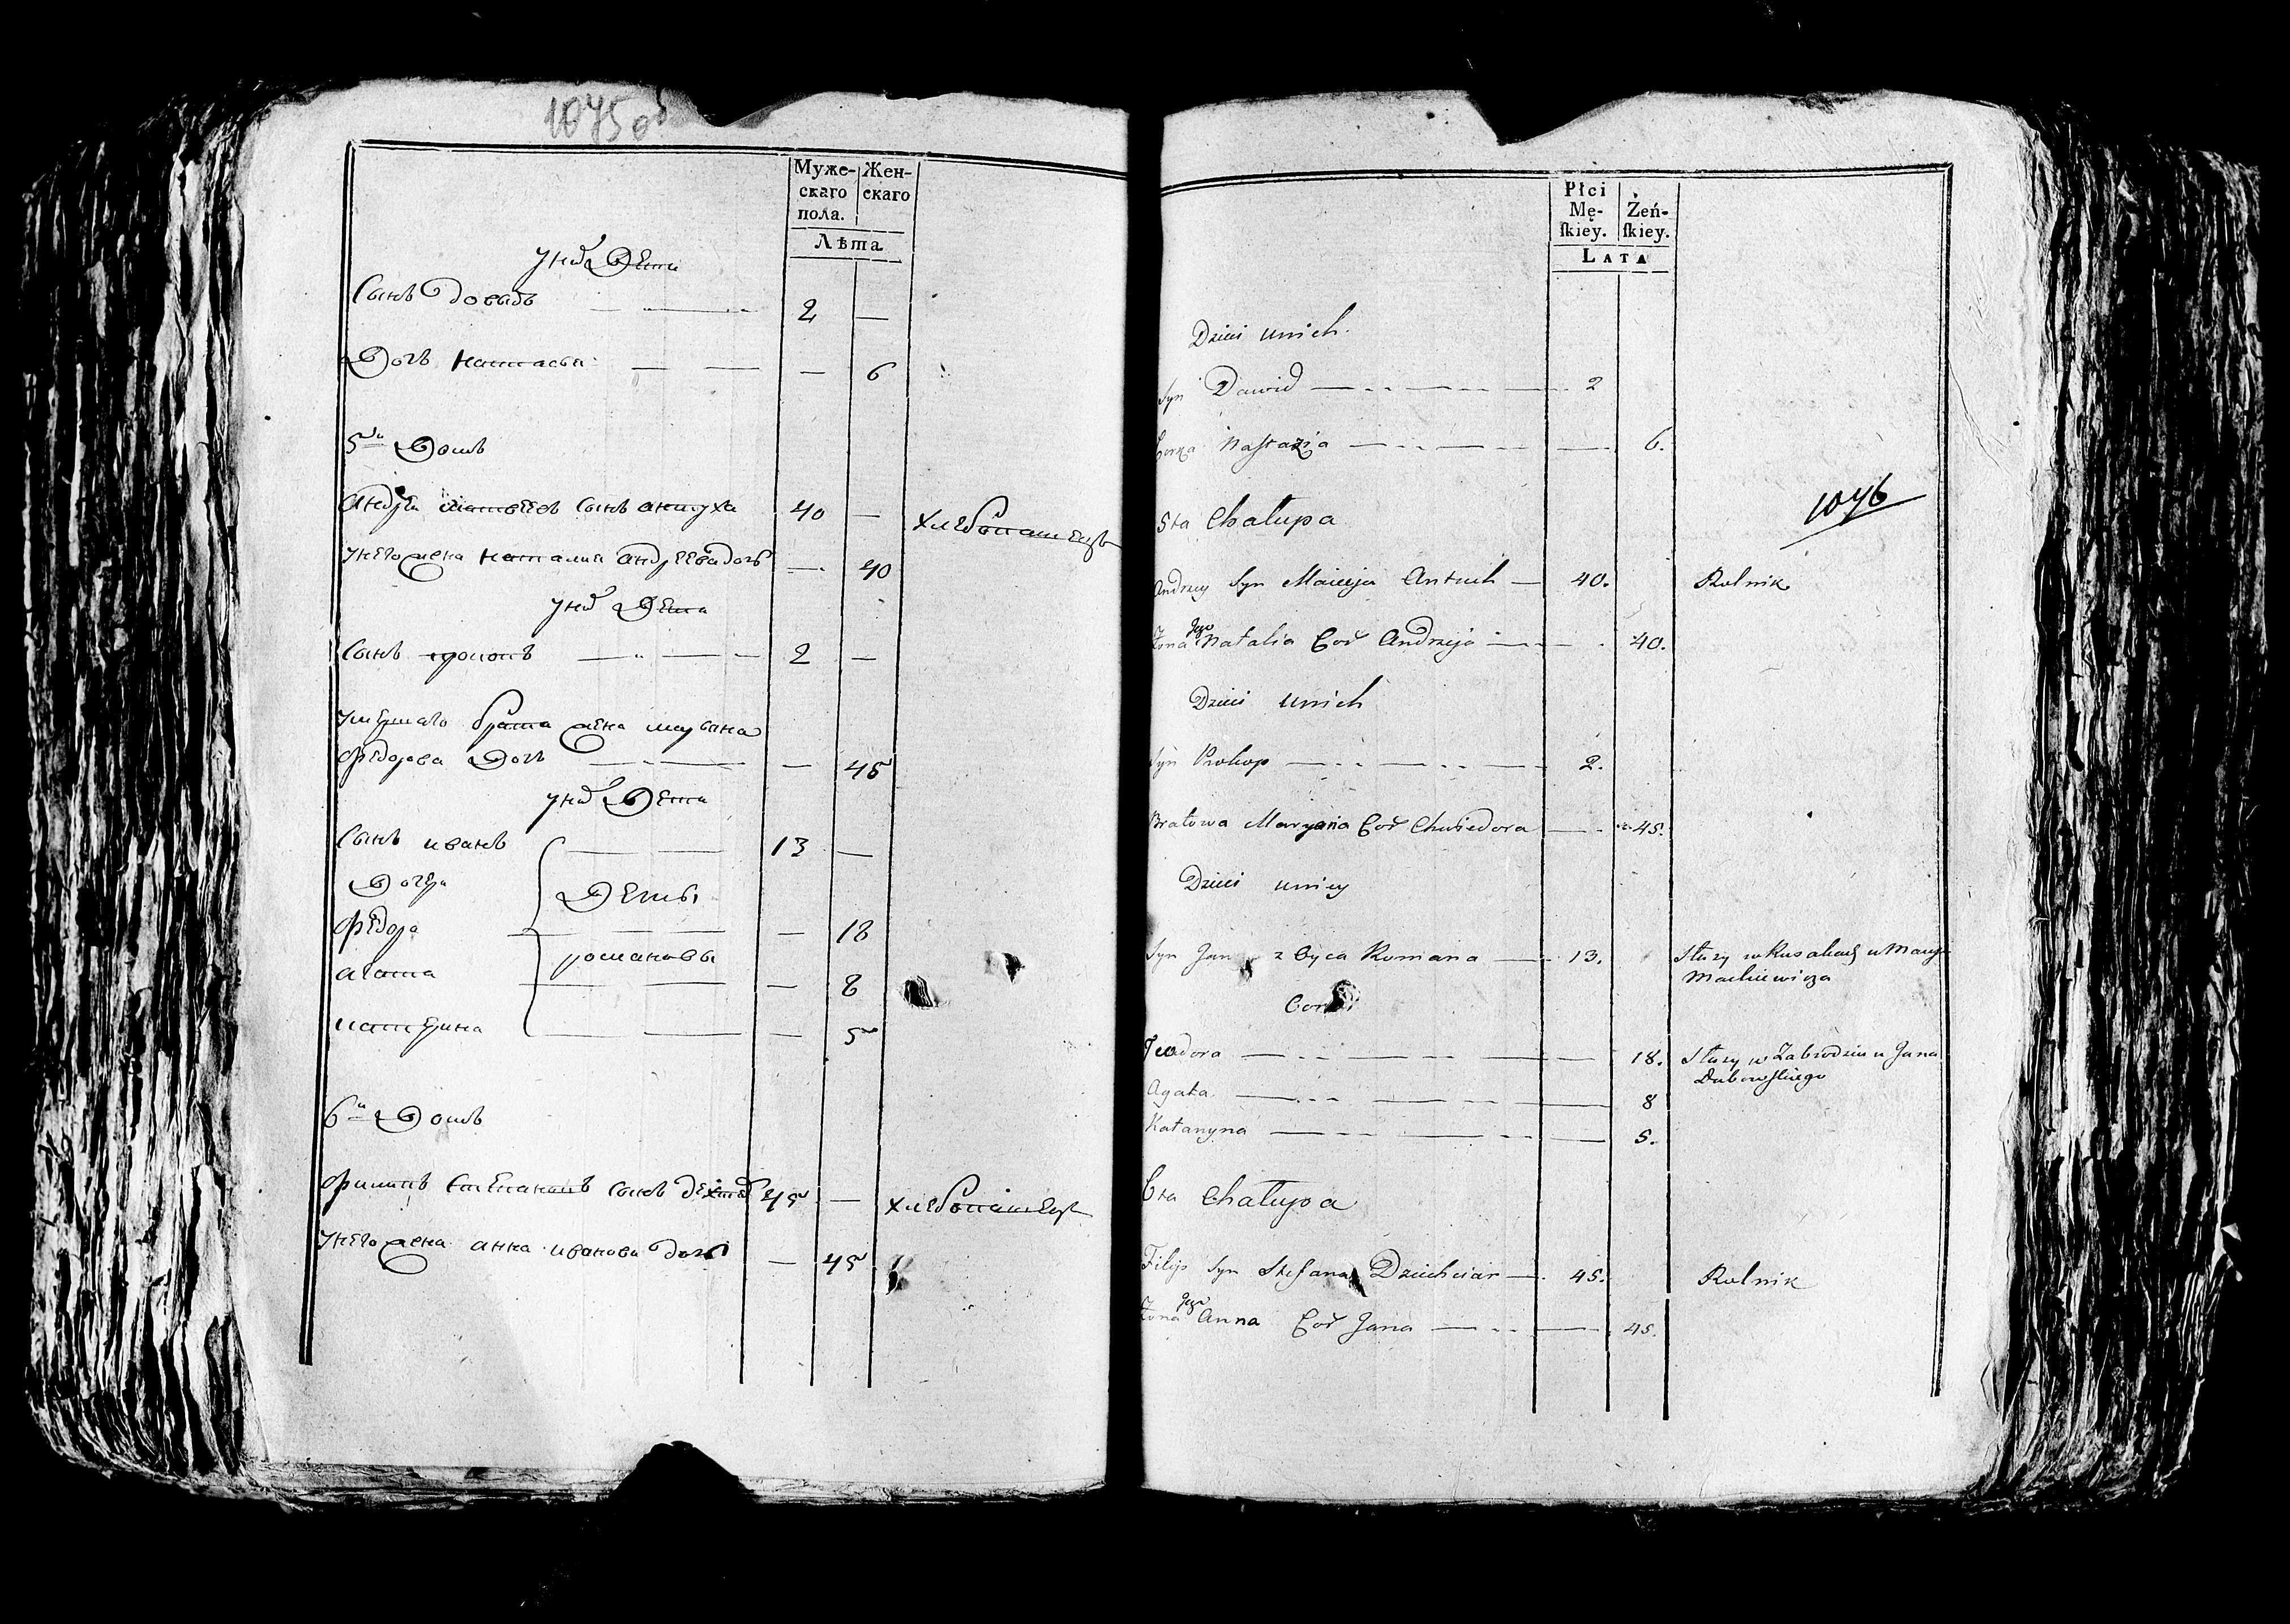 1075 об
Муже-
скаго
пола.
Жен-
скаго
Лѣта
у них Дети
Сынъ Довыдъ 2 —
Дочь настасья — 6
5й Домъ
андрей матвеевъ сынъ антуха 40 — хлебопашецъ
у него жена наталия андреева дочь — 40
у них Дети
Сынъ прокопъ 2 —
умершаго брата жена марьяна
федорова Дочь — 45
у ней Дети
Сынъ иванъ 13 —
Дочери
Дети
федора — 18
романовы
агата — 8
катерина — 5
6й Домъ
филипъ степановъ сынъ дехтяр 45 — хлебопашецъ
у него жена анна иванова дочь — 45
Płci
Mę-
ſkiey.
Żeń-
ſkiey.
LATA
Dzieci u nich
Syn Dawid 2
Corka Nastazia — 6.
1076
5ta Chałupa
Andrzey Syn Macieja Antuch — 40. Rolnik
Żona Jego Natalia Cor Andrzeja — 40.
Dzieci u nich
Syn Prokop — 2.
Bratowa Maryana Cor Chwiedora — 45.
Dzieci u niey
Syn Jan z Oyca Romana — 13. Służy w Rusakach u
Mackiewicza
Corki
Teodora — 18. Służy w Zabrodziu u Jana
Dubowskiego
Agata — 8
Kataryna — 5.
6ta Chałupa
Filip Syn Stefana Dziechciar — 45. Rolnik
Żona Jego Anna Cor Jana — 45.